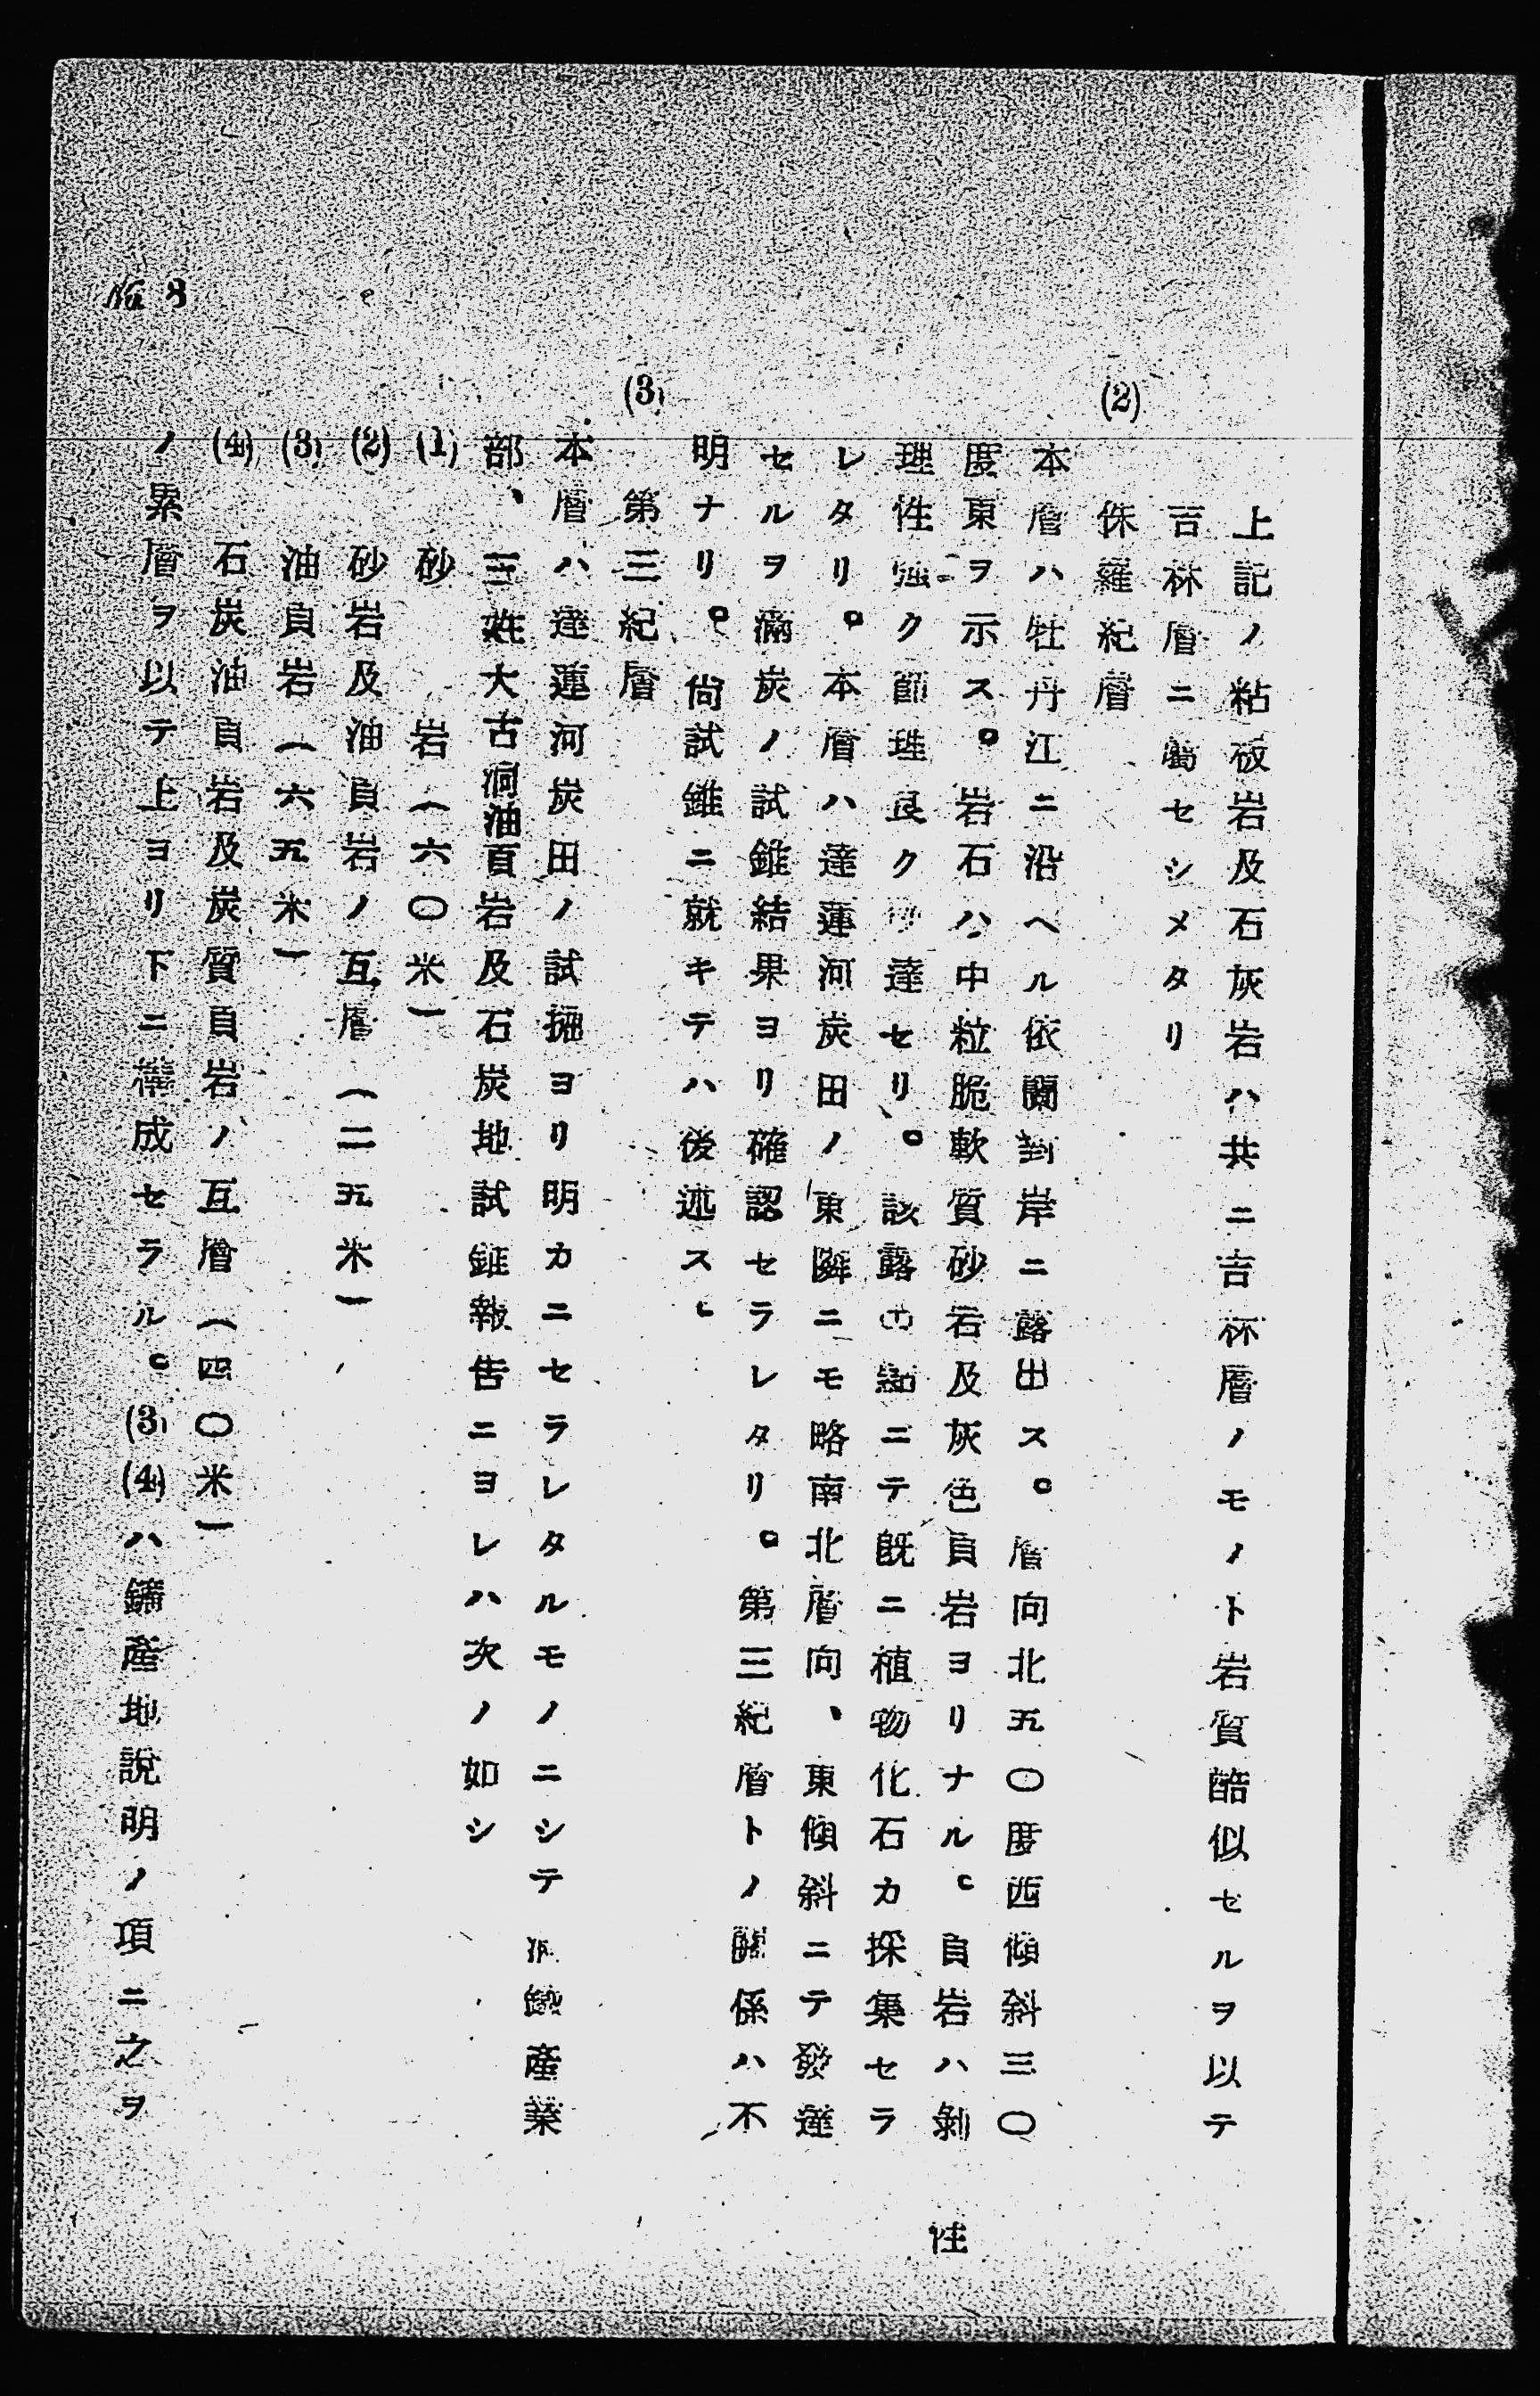 上記ノ粘板岩及石灰岩ハ共ニ吉林層ノモノト岩質酷似セルヲ以テ
吉林層ニ属セシメタリ
(2) 侏羅紀層
本層ハ牡丹江ニ沿ヘル依蘭対岸ニ露出ス。層向北五〇度西傾斜三〇
度東ヲ示ス。岩石ハ中粒脆軟質砂岩及灰色頁岩ヨリナル。頁岩ハ剥
理性強ク節理良ク達セリ。該露ニテ既ニ植物化石カ採集セラ
レタリ。本層ハ達蓮河炭田ノ東隣ニモ略南北層向、東傾斜ニテ発達
セルヲ満炭ノ試錐結果ヨリ確認セラレタリ。第三紀層トノ関係ハ不
明ナリ。尚試錐ニ就キテハ後述ス。
(3) 第三紀層
本層ハ達蓮河炭田ノ試掘ヨリ明カニセラレタルモノニシテ産業
部、三姓大古洞油頁岩及石炭地試錐報告ニヨレハ次ノ如シ
(1) 砂岩(六〇米)
(2) 砂岩及油頁岩ノ互層(二五米)
(3) 油頁岩(六五米)
(4) 石炭油頁岩及炭質頁岩ノ互層(四〇米)
ノ累層ヲ以テ上ヨリ下ニ構成セラル。(3)(4)ハ鑛産地説明ノ項ニ之ヲ
性
No. 8